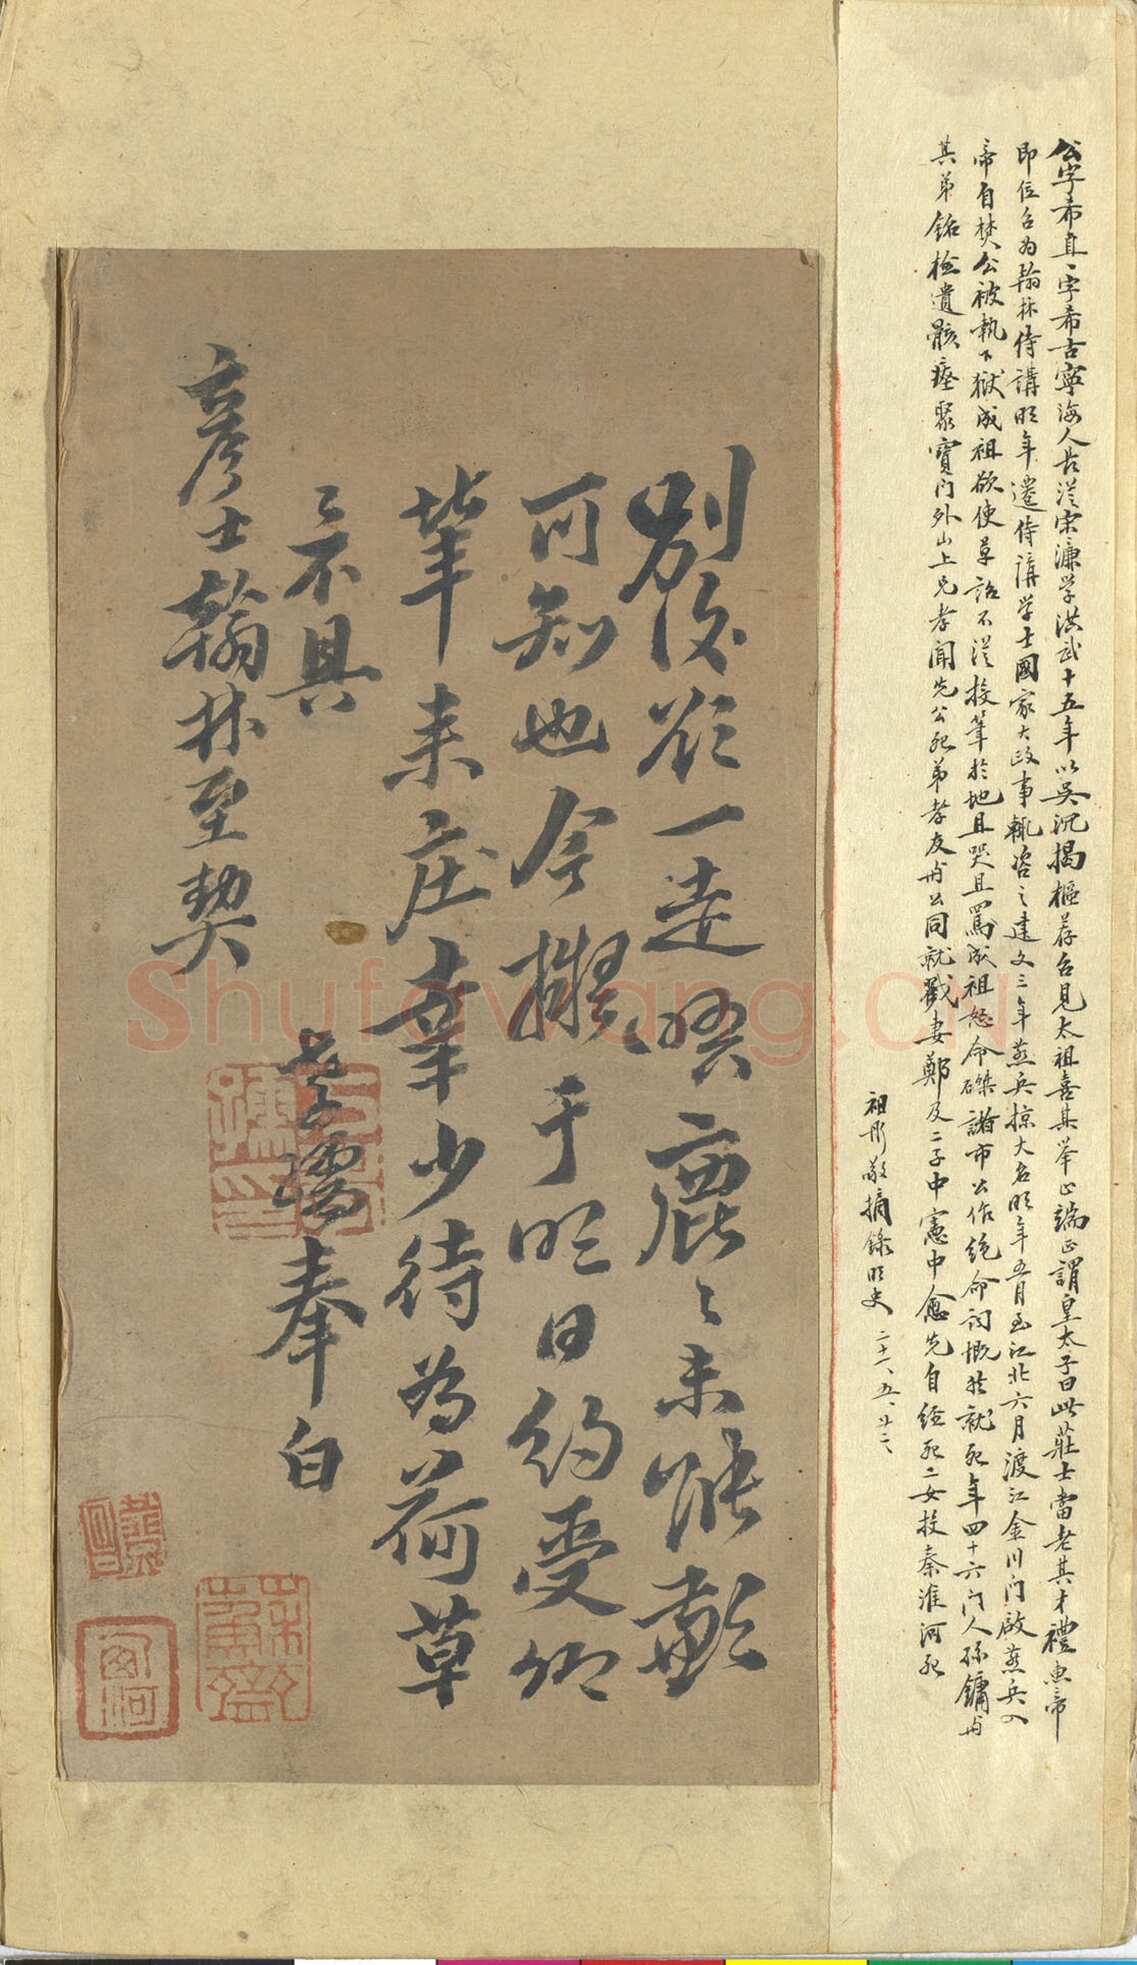 公字希直一字希古寧海人長從宋濂學洪武十五年以吳沉揭樞荐召見太祖喜其舉止端正謂皇太子曰此莊士當老其才禮惠帝
即位召為翰林侍講明年遷侍講学士國家大政事輒咨之建文三年燕兵掠大名明年五月至江北六月渡江金川門啟燕兵入
帝自焚公被執下獄成祖欲使草詔不從投筆於地且哭且罵成祖怒命磔諸市公作絕命詞慨然就死年四十六門人孫鏞与
其弟銘檢遺骸瘞聚寶門外山上兄孝聞先公死弟孝友与公同就戮妻鄭及二子中憲中愈先自經死二女投秦淮河死
祖彤敬摘錄明史 二十一、五、廿二、
別後欲一走𣇈鹿鹿未能歉
可知也今擬于明日約受卿
筆來庄幸少待為荷草
々不具
彥士翰林至契
孝孺奉白
Shufawang.cn